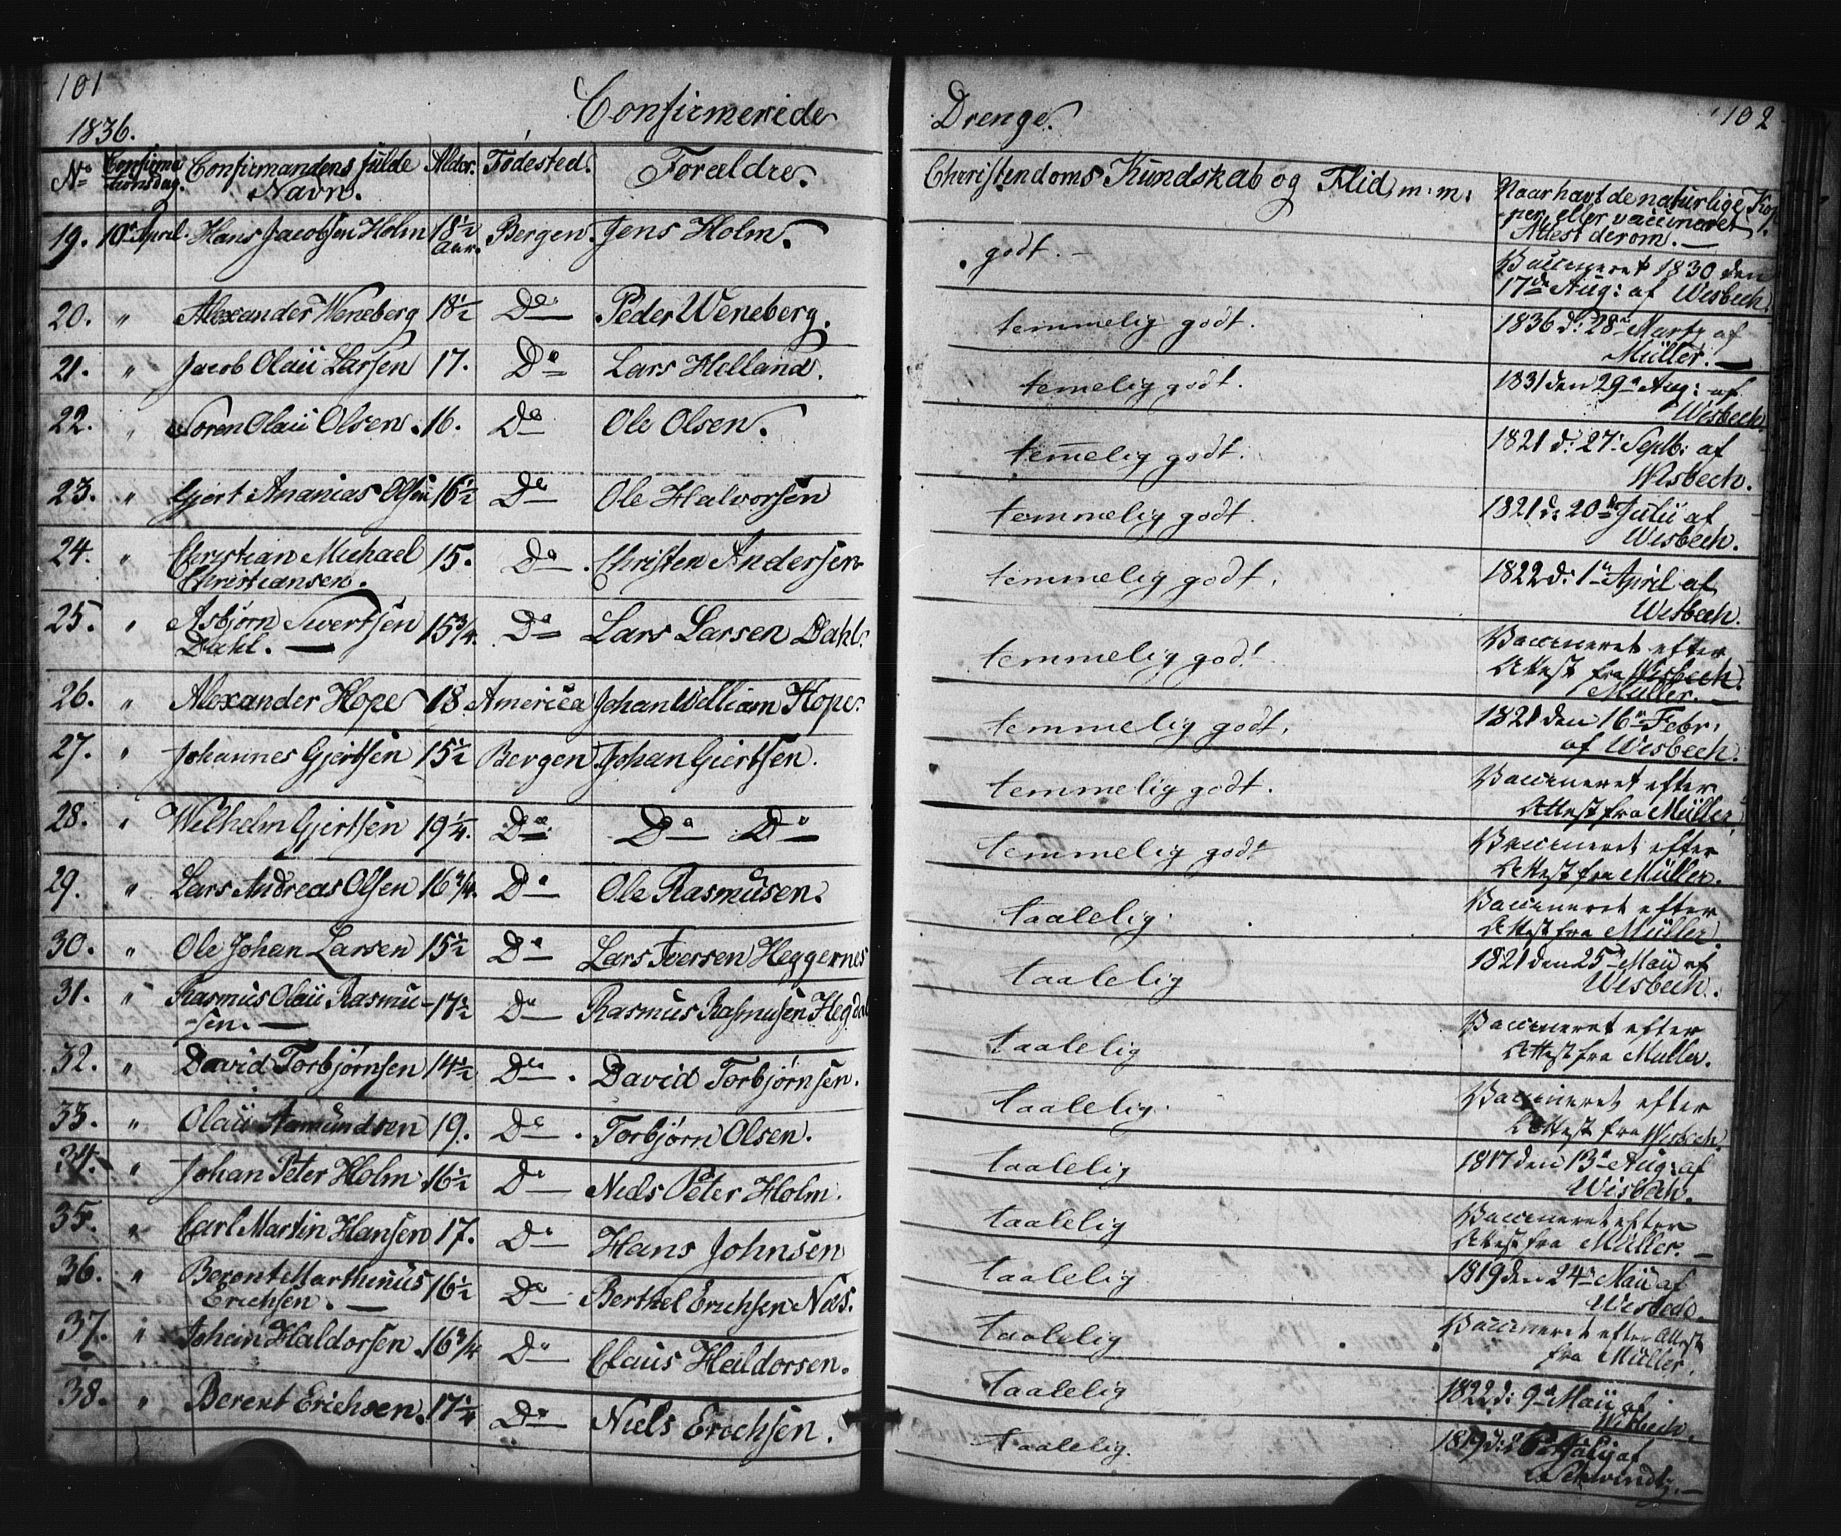 101
1836.
Confirmerede
Drenge.
102
No Confirmationsdag. Confirmandens fulde Navn. Alder. Födested. Forældre. Christendoms Kundskab og Flid m: m: Naar havt de naturlige Kopper, eller vaccineret, Attest derom. —
19. 10de April. Hans Jacobsen Holm 18½ Aar. Bergen. Jens Holm. godt. - Vaccineret 1830 den 17de Aug: af Wisbech.
20. " Alexander Weneberg 18½ Do Peder Weneberg. temmelig godt. 1836 d: 28de Marty af Müller. —
21. " Jacob Olaü Larsen 17. Do Lars Helland. temelig godt. 1831 den 29de Aug: af Wisbech.
22. " Sören Olaü Olsen. 16. Do Ole Olsen. temelig godt. 1821 d: 27: Septb: af Wisbech.
23. " Gjert Ananias Olsen 16½ Do Ole Halvorsen temmelig godt. 1821 d: 20de Julii af Wisbech.
24. " Christian Michael Christiansen. 15. Do. Christen Andersen temmelig godt. 1822 d: 1ste April af Wisbech.
25. " Asbjörn Sivertsen Dahl. — 15¾. Do Lars Larsen Dahl. temmelig godt Vaccineret efter Attest fra Wisbech. Müller.
26. " Alexander Hope 18 America Johan William Hope temmelig godt. 1821 den 16de Febr: af Wisbech.
27. " Johannes Gjertsen 15½ Bergen. Johan Giertsen. temmelig godt. Vaccineret efter Attest fra Müller.
28. " Wilhelm Gjertsen 19¼. Do Do Do temmelig godt Vaccineret efter Attest fra Müller.
29. " Lars Andreas Olsen 16¾. Do Ole Rasmusen. taalelig. Vaccineret efter Attest fra Müller
30. " Ole Johan Larsen 15½ Do Lars Iversen Heggernes taalelig 1821 den 25de Maii af Wisbech.
31. " Rasmus Olaü Rasmu-sen. — 17½ Do Rasmus Rasmusen Hegdal taalelig Vaccineret efter Attest fra Müller.
32. " David Torbjörnsen 14½ Do. David Torbjörnsen. taalelig. Vaccineret efter Attest fra Wisbech
33. " Olaü Amundsen 19. Do. Torbjörn Olsen. taalelig 1817 den 13de Aug: af Wisbech.
34. " Johan Peter Holm 16½ Do Niels Peter Holm. taalelig Vaccineret efter Attest fra Müller. —
35. " Carl Martin Hansen 17. Do Hans Johnsen taalelig 1819 den 24de Maii af Wisbech.
36. " Berent Marthinus Erichsen. — 16½ Do Berthel Erichsen Næs. taalelig Vaccineret efter Attest fra Müller.
37. " Johan Haldorsen 16¾ Do Claus Haldorsen. taalelig 1822 d: 9de Maii af Wisbech.
38. " Berent Erichsen. 17¼ Do Niels Erichsen. taalelig. 1819 d: Julij af Schwindt. —